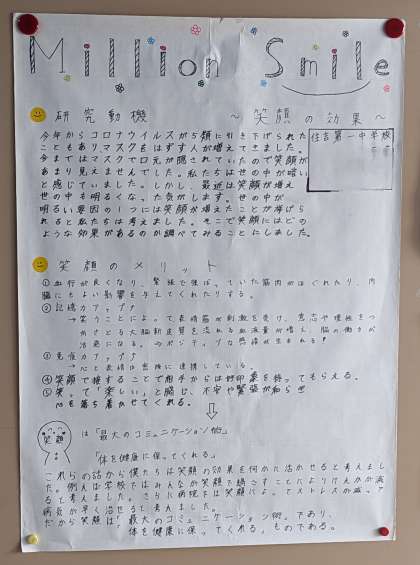 Million Smile
研究動機 〜笑顔の効果〜
今年からコロナウイルスが5類に引き下げられた
こともありマスクをはずす人が増えてきました。
今まではマスクで口元が隠されていたので笑顔が
あまり見えませんでした。私たちは世の中が暗い
と感じていました。しかし、最近は笑顔が増え
世の中も明るくなった気がします。世の中が
明るい要因の1つには笑顔が増えたことが挙げら
れると私たちは考えました。そこで笑顔にはどの
ような効果があるのか調べてみることにしました。
住吉第一中学校
笑顔のメリット
①血行が良くなり、緊張で強ばっていた筋肉がほぐれたり、内
臓にもよい影響を与えてくれたりする。
②記憶力アップ
→笑うことによって表情筋が刺激を受け、意志や理性をつ
かさどる大脳新皮質を流れる血液量が増え、脳の働きが
活発になる。
③免疫力アップ
→心と表情は密接に連携している。
④笑顔で接することで相手からは好印象を持ってもらえる。
⑤笑って「楽しい」と感じ、不安や緊張が和らぎ
心を落ち着かせてくれる。
笑顔 は「最大のコミュニケーション術」
「体を健康に保ってくれる」
これらの話から僕たちは笑顔の効果を何かに活かせると考えまし
た。例えば学校ではみんなが笑顔で過ごすことによりけんかが減
ると考えました。さらに病院では笑顔によってストレスが減って
病気が早く治せると考えました。
だから笑顔は「最大のコミュニケーション術。であり、
体を健康に保ってくれる。ものである。